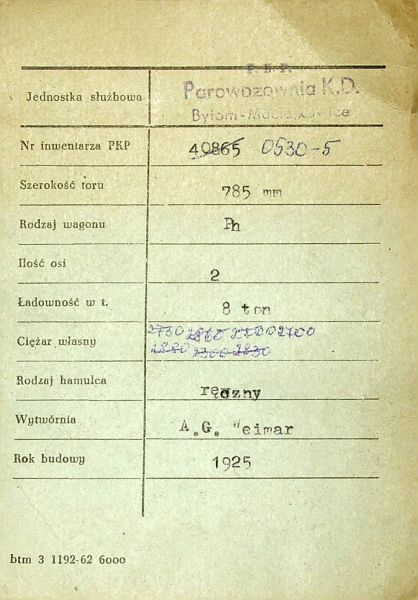 P. K. P.
Jednostka służbowa Parowozownia K.D.
Bytom-Maciejkowice
Nr inwentarza PKP 40865 0530-5
Szerokość toru 785 mm
Rodzaj wagonu Ph
Ilość osi 2
Ładowność w t. 8 ton
2730 2865 2700
Ciężar własny 2880 2300 2830
Rodzaj hamulca ręczny
Wytwórnia A.G. Weimar
Rok budowy 1925
btm 3 1192-62 6000